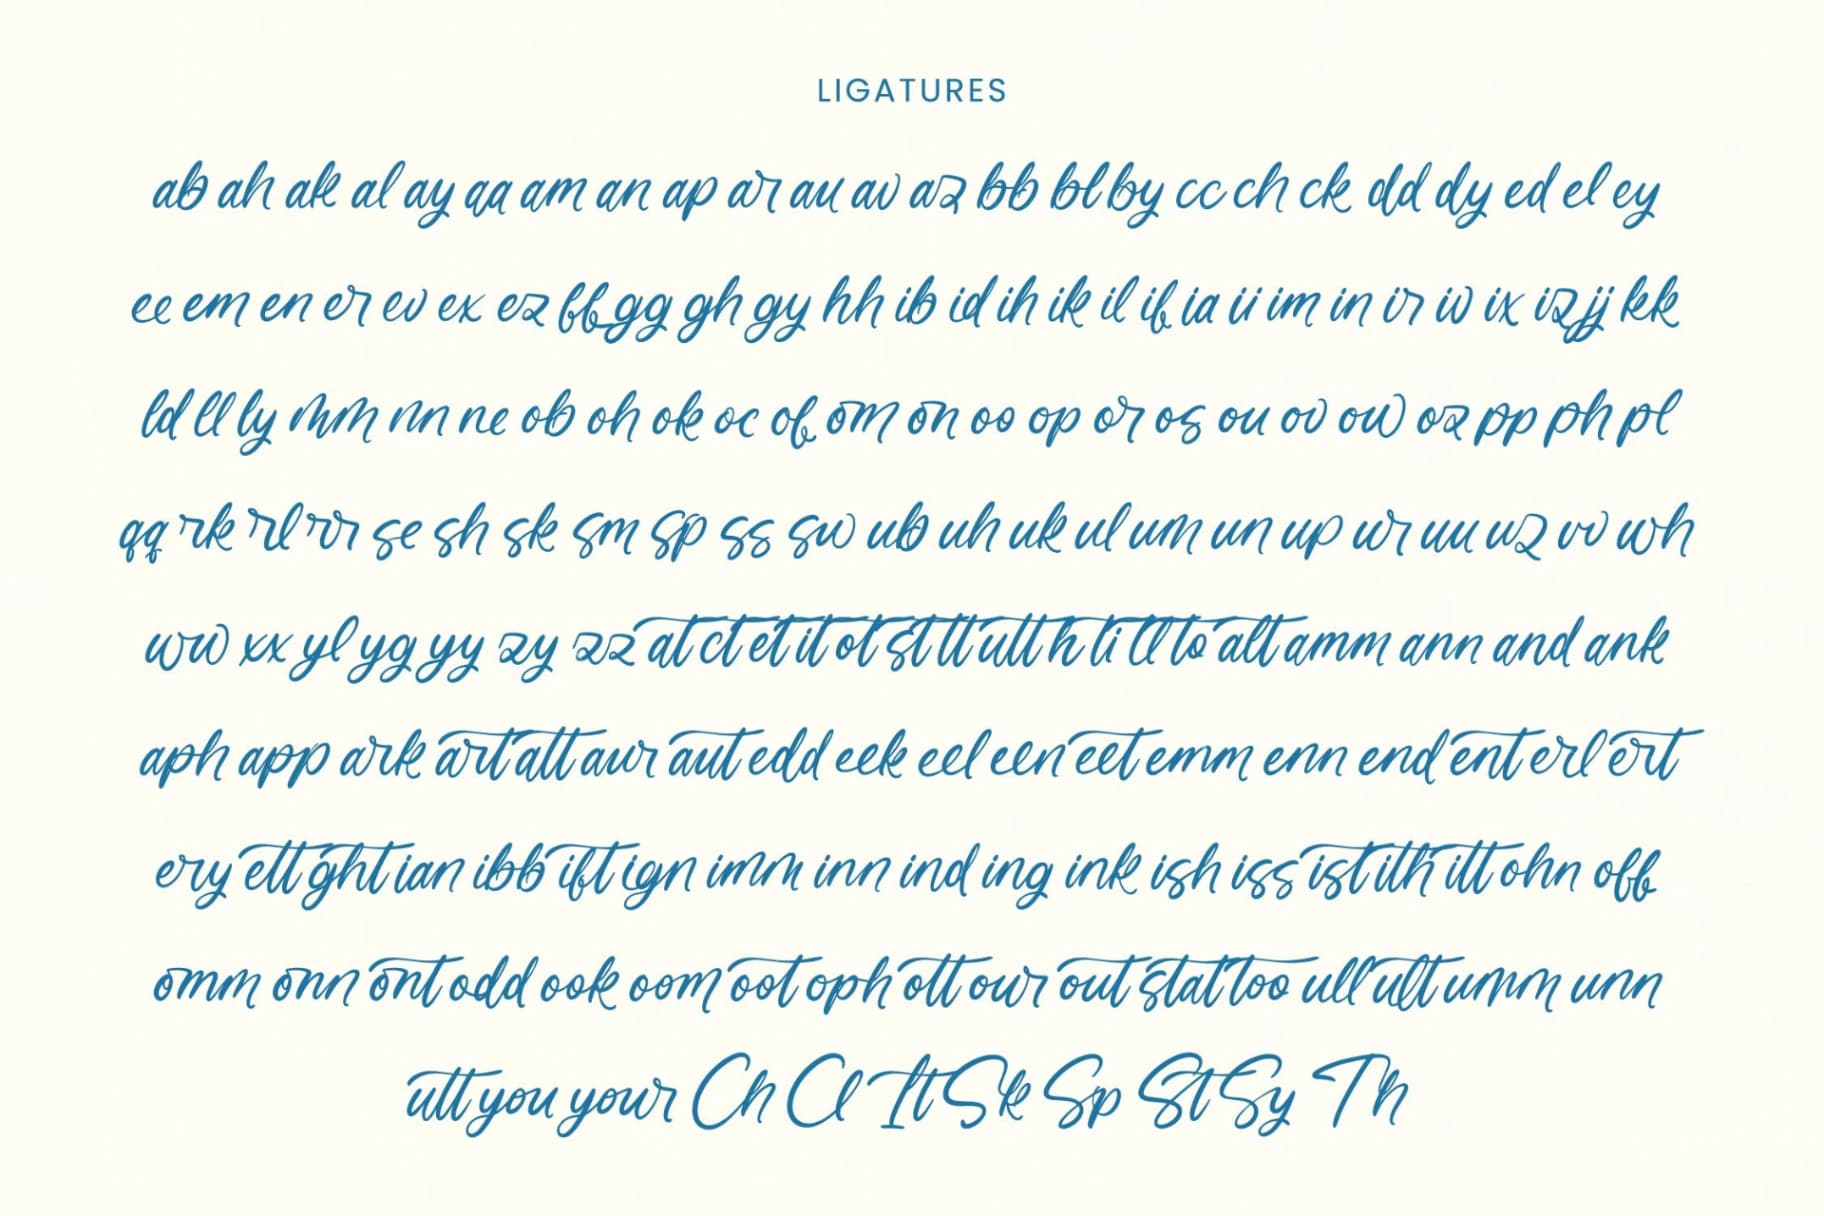 LIGATURES
ab ah ak al ay aa am an ap ar au av az bb bl by cc ch ck dd dy ed el ey
ee em en er ev ex ez ff gg gh gy hh ib id ih ik il if ia ii im in ir iv ix iz jj kk
ld ll ly mm nn ne ob oh ok oc of om on oo op or os ou ov ow oz pp ph pl
qq rk rl rr se sh sk sm sp ss sw ub uh uk ul um un up ur uu uz vv wh
ww xx yl yg yy zy zz at ct et it ot st tt ut th ti tl to alt amm ann and ank
aph app ark art att aur aut edd eek eel een eet emm enn end ent erl ert
ery ett ght ian ibb ift ign imm inn ind ing ink ish iss ist ith itt ohn off
omm onn ont odd ook oom oot oph ott our out stat too ull ult umm unn
utt you your Ch Cl It Sk Sp St Sy Th